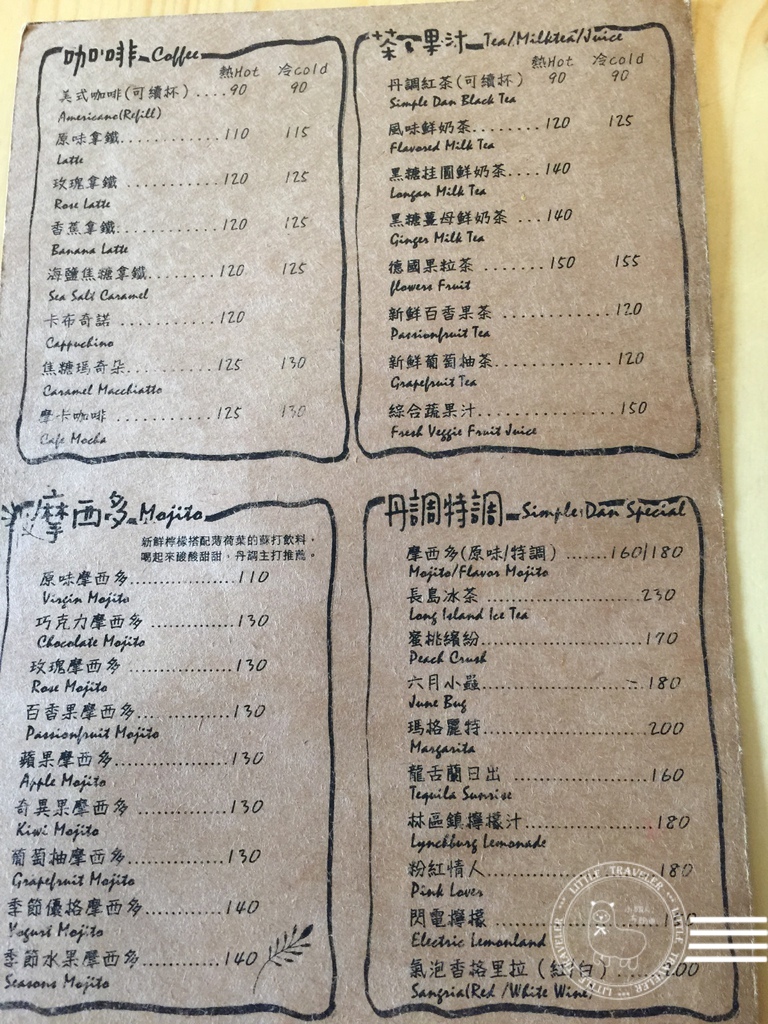 咖啡 Coffee
熱Hot 冷cold
美式咖啡(可續杯)....90 90
Americano(Refill)
原味拿鐵............110 115
Latte
玫瑰拿鐵............120 125
Rose Latte
香蕉拿鐵............120 125
Banana Latte
海鹽焦糖拿鐵........120 125
Sea Salt Caramel
卡布奇諾............120
Cappuchino
焦糖瑪奇朵..........125 130
Caramel Macchiatto
摩卡咖啡............125 130
Cafe Mocha
茶、果汁 Tea/Milktea/Juice
熱Hot 冷cold
丹調紅茶(可續杯) 90 90
Simple Dan Black Tea
風味鮮奶茶........120 125
Flavored Milk Tea
黑糖桂圓鮮奶茶....140
Longan Milk Tea
黑糖薑母鮮奶茶....140
Ginger Milk Tea
德國果粒茶........150 155
flowers Fruit
新鮮百香果茶............120
Passionfruit Tea
新鮮葡萄柚茶............120
Grapefruit Tea
綜合蔬果汁..............150
Fresh Veggie Fruit Juice
摩西多 Mojito
新鮮檸檬搭配薄荷葉的蘇打飲料，
喝起來酸酸甜甜，丹調主打推薦。
原味摩西多..............110
Virgin Mojito
巧克力摩西多............130
Chocolate Mojito
玫瑰摩西多..............130
Rose Mojito
百香果摩西多............130
Passionfruit Mojito
蘋果摩西多..............130
Apple Mojito
奇異果摩西多............130
Kiwi Mojito
葡萄柚摩西多............130
Grapefruit Mojito
季節優格摩西多..........140
Yogurt Mojito
季節水果摩西多..........140
Seasons Mojito
丹調特調 Simple Dan Special
摩西多(原味/特調).......160/180
Mojito/Flavor Mojito
長島冰茶................230
Long Island Ice Tea
蜜桃繽紛................170
Peach Crush
六月小蟲................180
June Bug
瑪格麗特................200
Margarita
龍舌蘭日出..............160
Tequila Sunrise
林區鎮檸檬汁............180
Lynchburg Lemonade
粉紅情人................180
Pink Lover
閃電檸檬................
Electric Lemonland
氣泡香格里拉(紅/白).....200
Sangria(Red/White Wine)
LITTLE TRAVELER